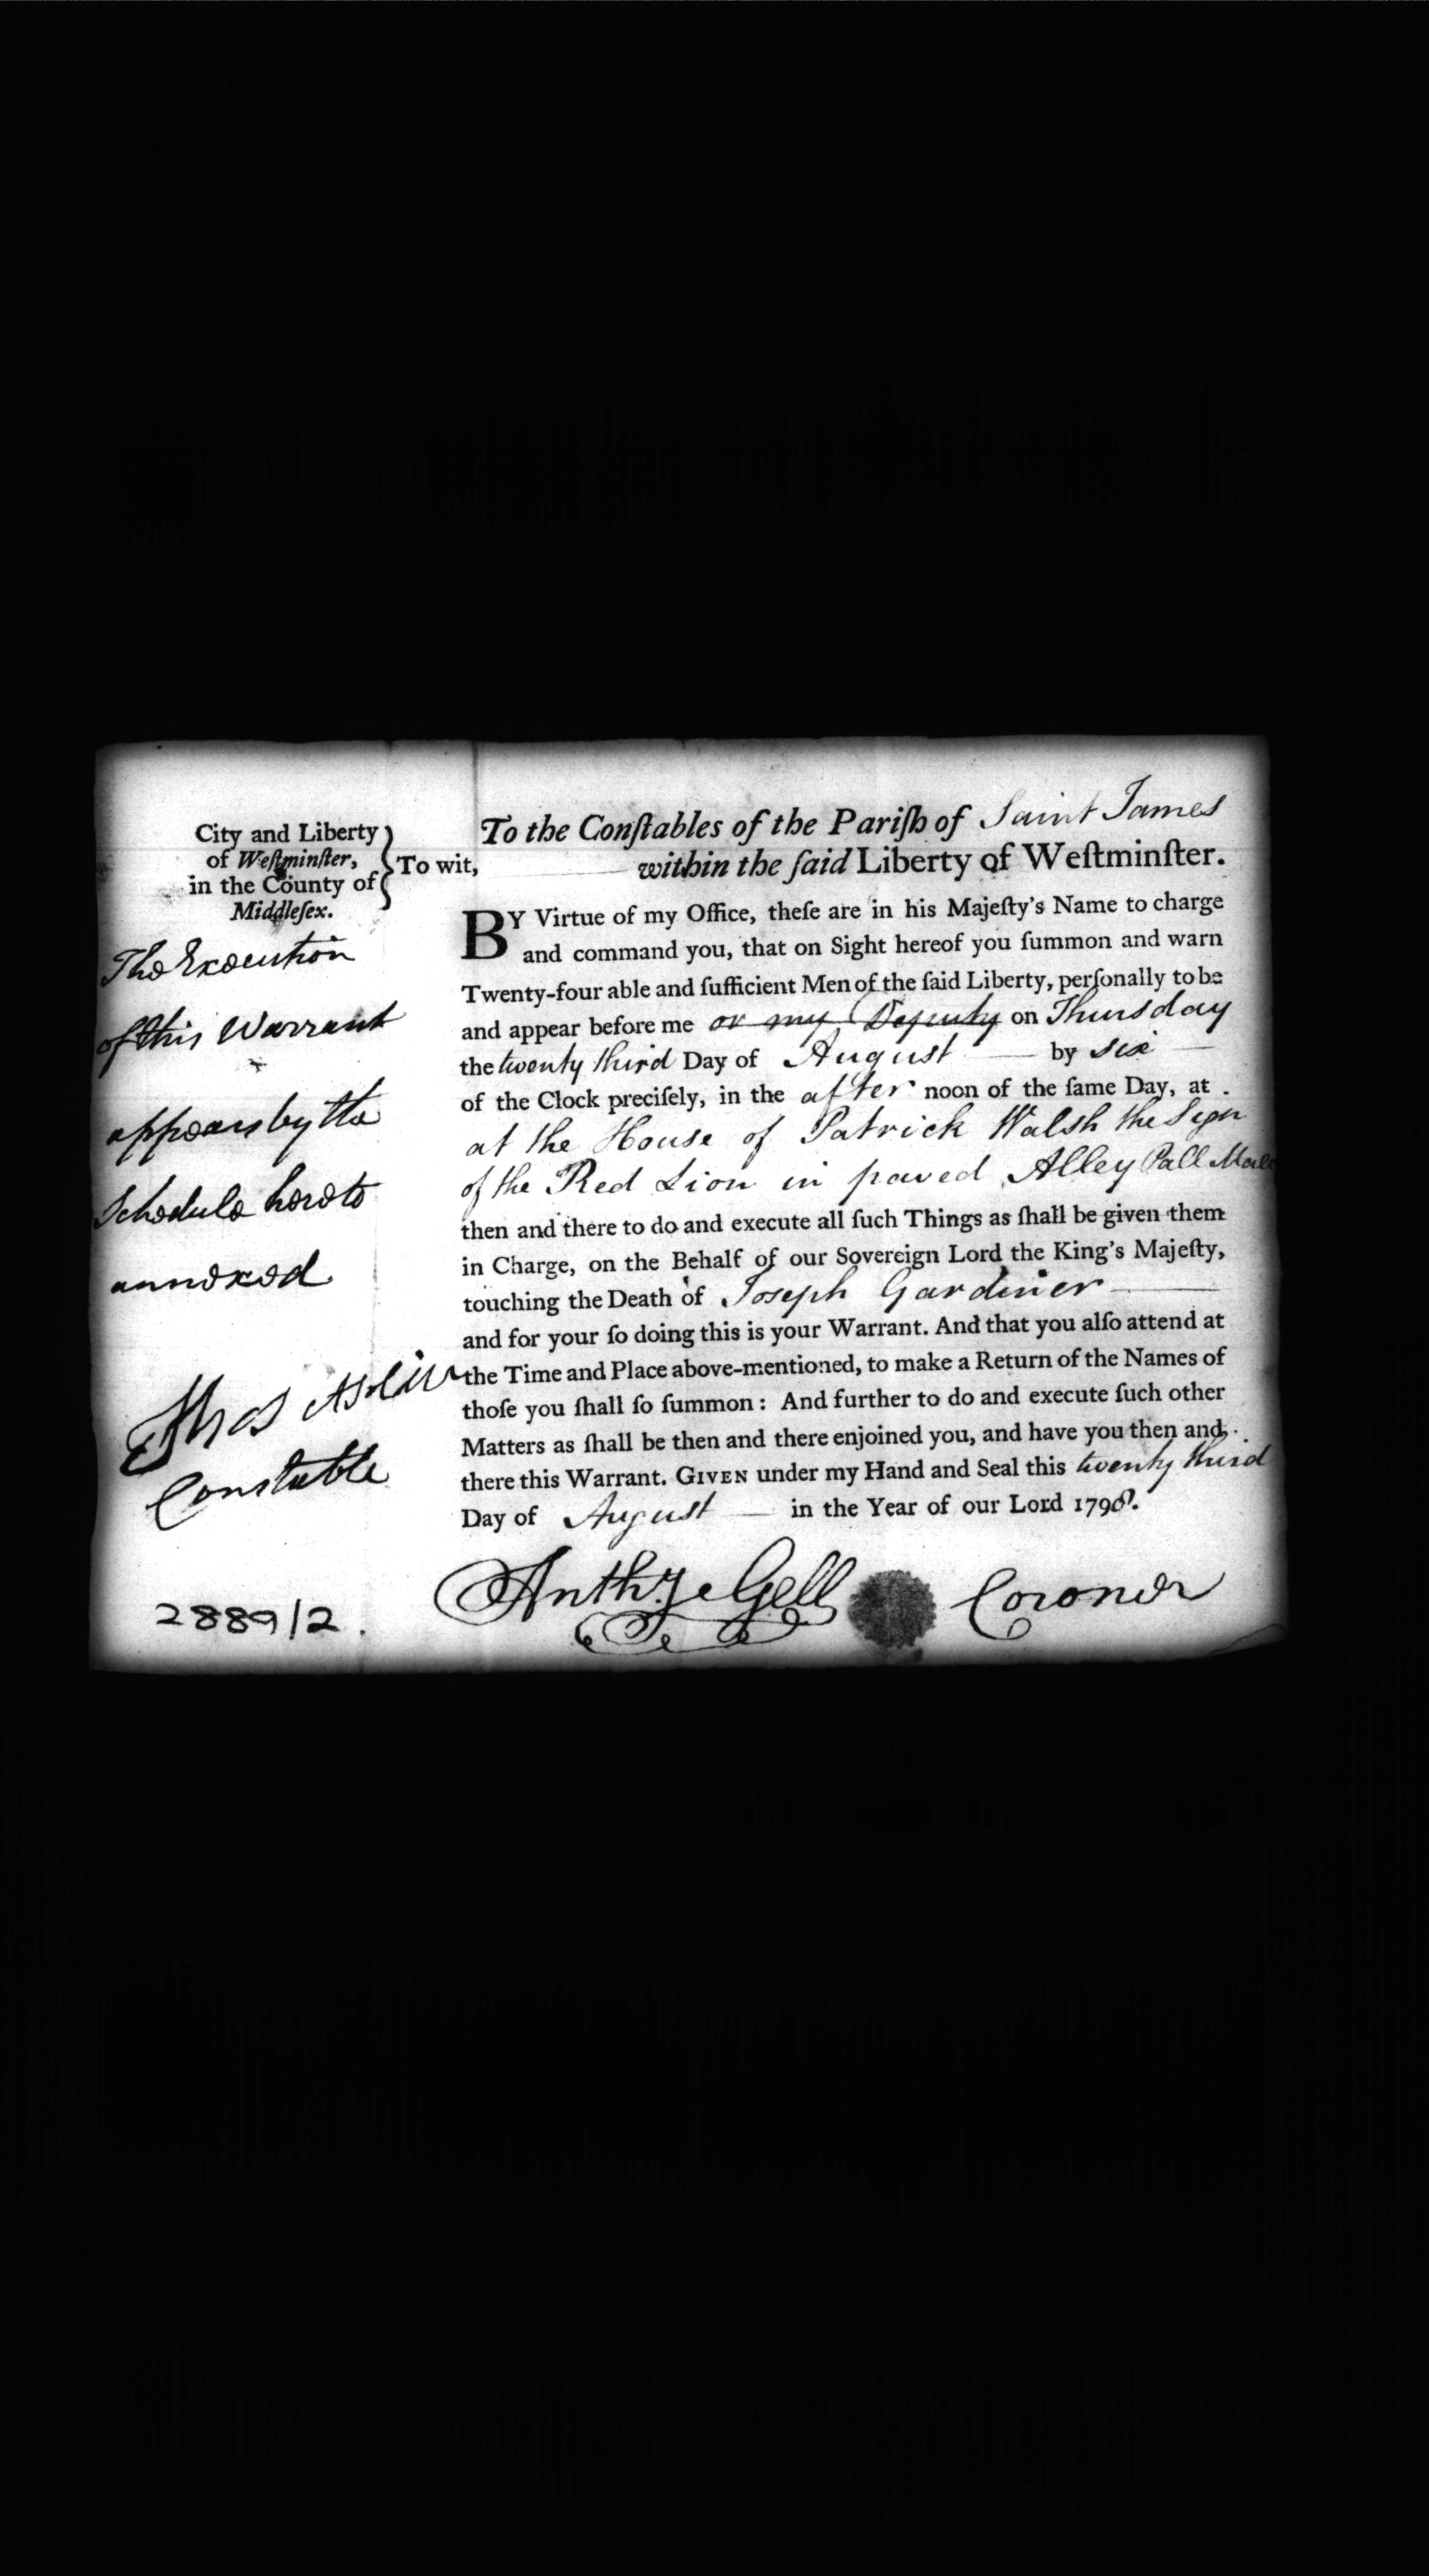 City and Liberty
of Weſtminſter,
in the County of
Middleſex.
To wit,
To the Conſtables of the Pariſh of Saint James
within the ſaid Liberty of Weſtminſter.
BY Virtue of my Office, theſe are in his Majeſty's Name to charge
and command you, that on Sight hereof you ſummon and warn
Twenty-four able and ſufficient Men of the ſaid Liberty, perſonally to be
and appear before me or my Deputy on Thursday
the twenty third Day of August by six
of the Clock preciſely, in the after noon of the ſame Day, at
at the House of Patrick Walsh the Sign
of the Red Lion in paved Alley Pall Mall
then and there to do and execute all ſuch Things as ſhall be given them
in Charge, on the Behalf of our Sovereign Lord the King's Majeſty,
touching the Death of Joseph Gardiner
and for your ſo doing this is your Warrant. And that you alſo attend at
the Time and Place above-mentioned, to make a Return of the Names of
thoſe you ſhall ſo ſummon: And further to do and execute ſuch other
Matters as ſhall be then and there enjoined you, and have you then and
there this Warrant. GIVEN under my Hand and Seal this twenty third
Day of August in the Year of our Lord 1798.
Anthy Gell Coroner
The Execution
of this Warrant
appears by the
Schedule hereto
annexed
Thos
Constable
2889/2.